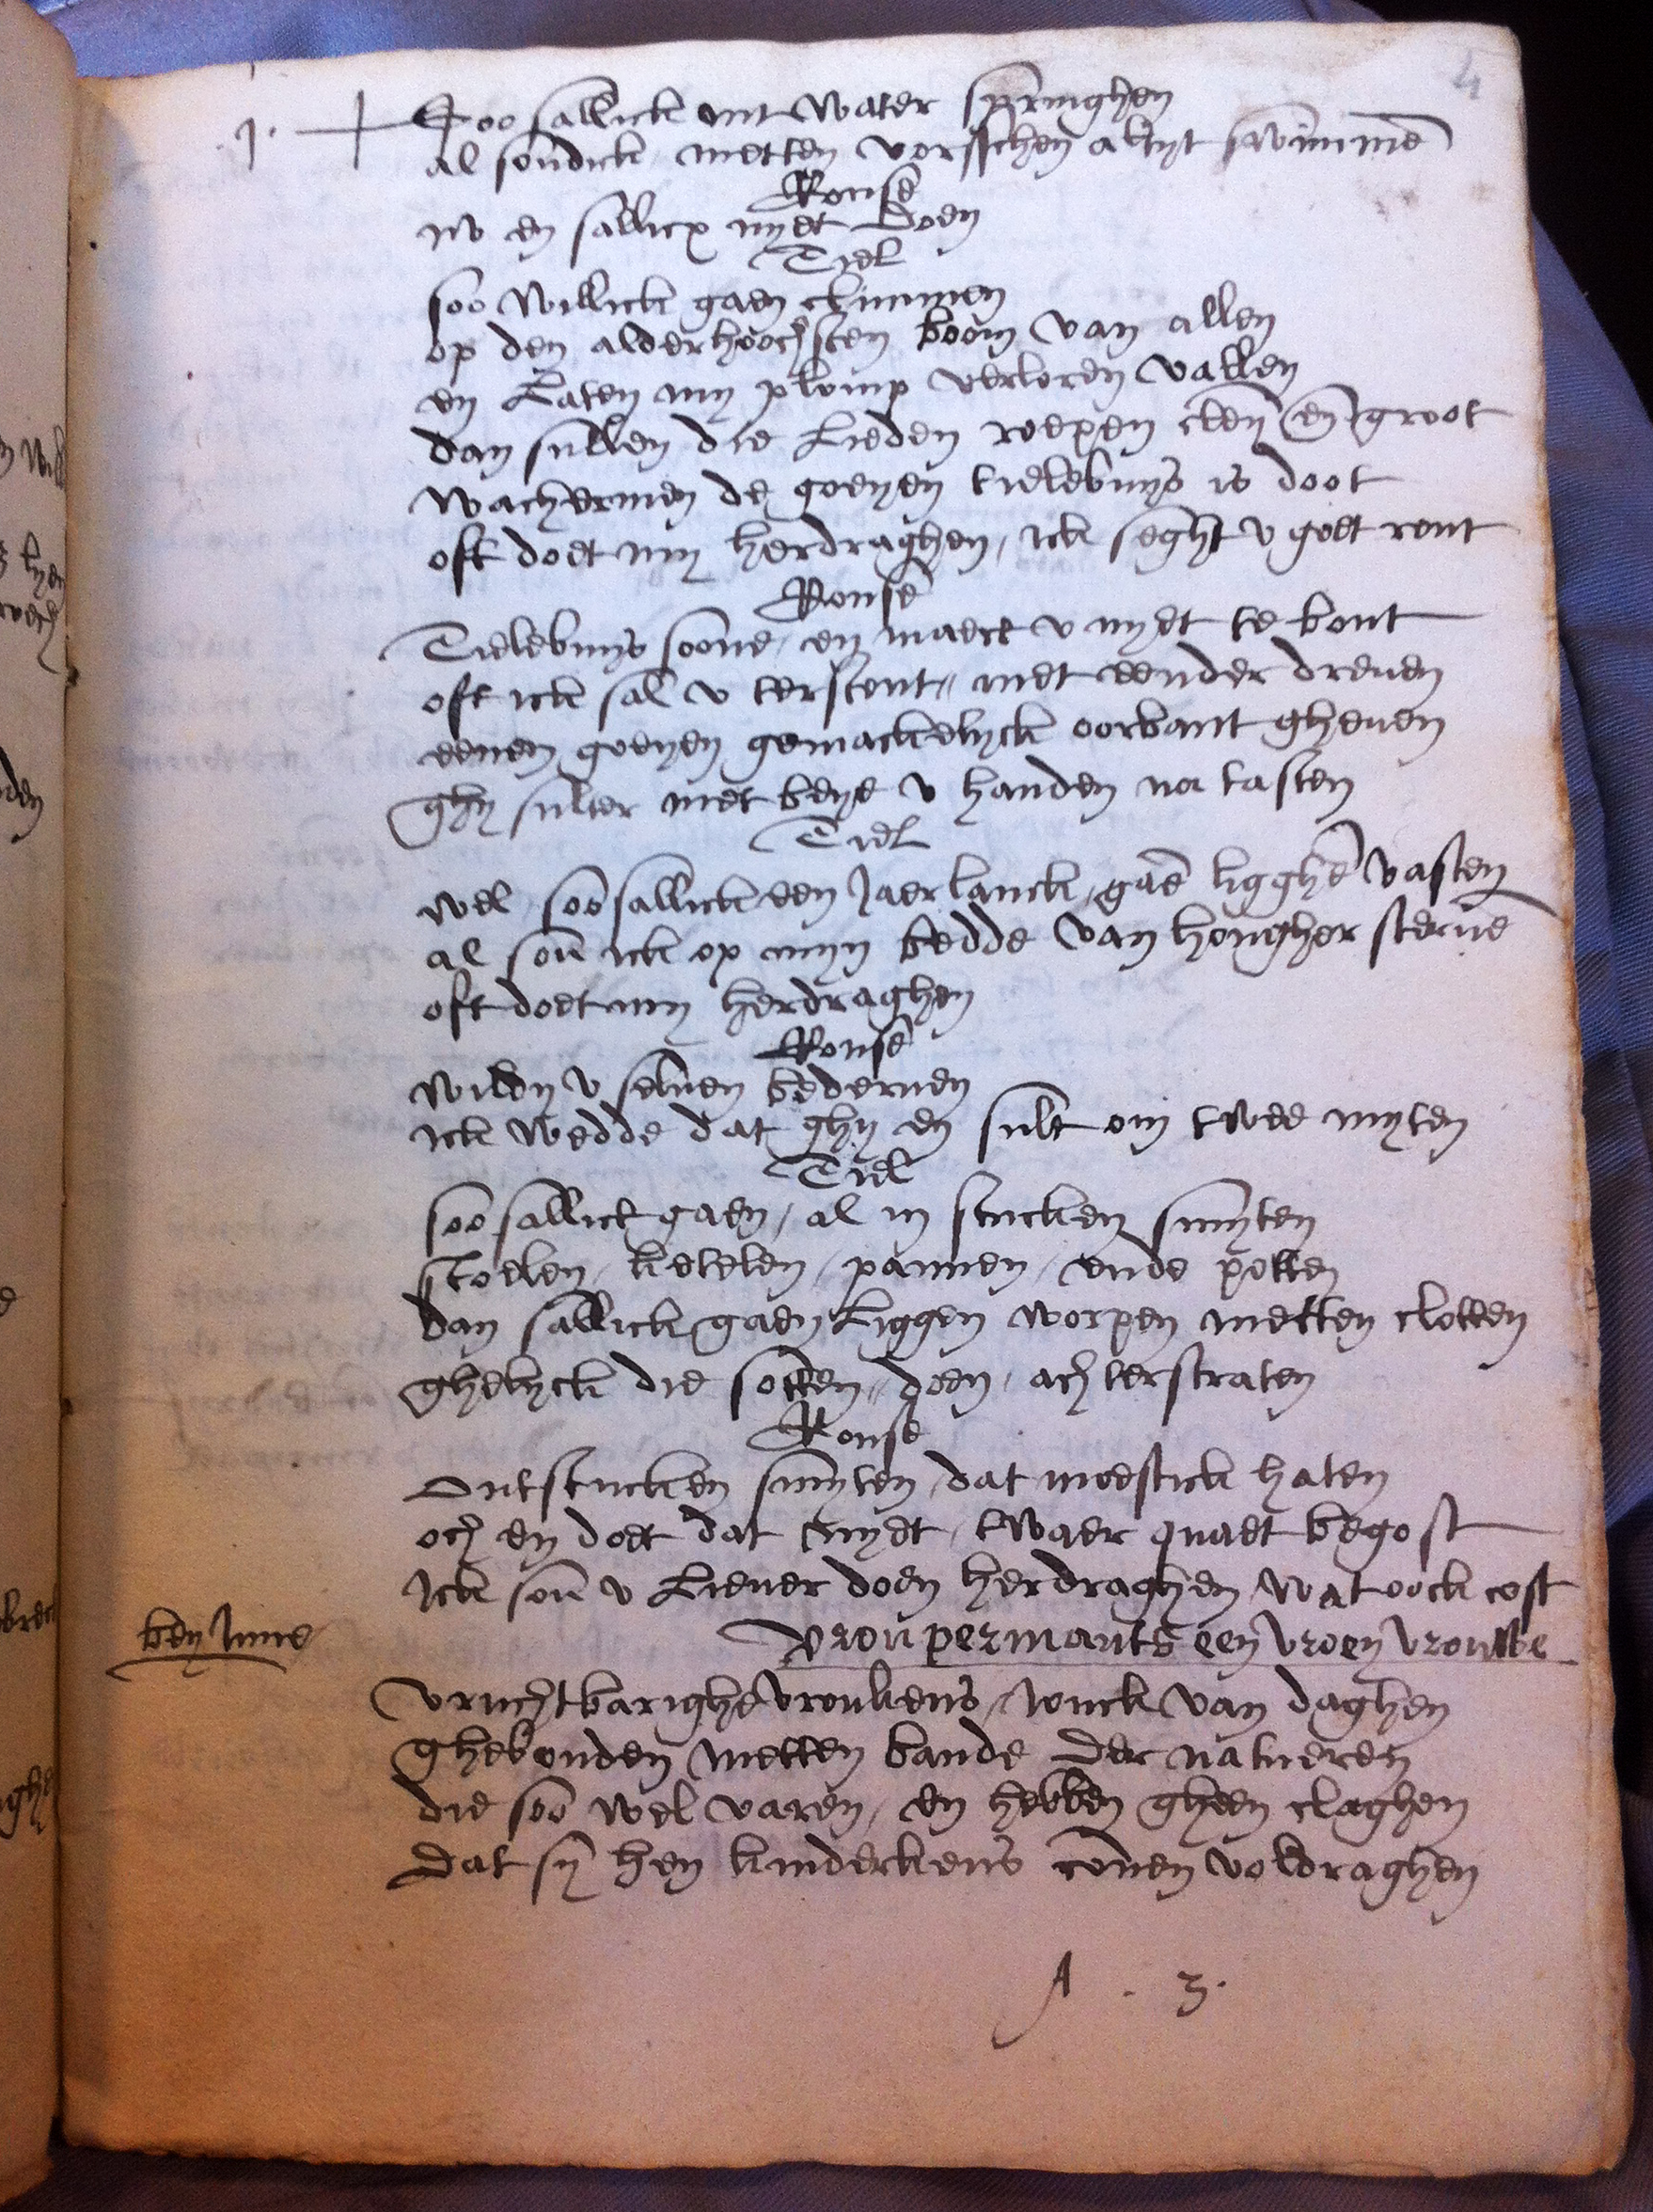 4
j. Soo sallick int water springhen
al soudick metten vorsschen altyt swimmē
Rouse
nv en sallicx nyet doen
Tiel
soo willick gaen climmen
op den alderhoochsten boom van allen
en Laten my plomp verloren vallen
dan sullen die Lieden roepen cleyn eñ groot
wachermen de goeyen tielebuys is doot
oft doet my herdraghen, ick seght v goet ront
Rouse
Tielebuys soone, en maect v nyet te bont
oft ick sal v terstont, met eender dreuen
eenen goeyen gemackelyck oorbant gheuen
ghy sulter met beye v handen na tasten
Tiel
wel, soo sallick een Jaer lanck, gaē ligghē vasten
al sou ick op myn bedde van hongher steruē
oft doet my herdraghen
Rouse
wildy v seluen bederuen
ick wedde dat ghy en sult om twee myten
Tiel
soo sallick gaen, al in stucken smyten
stoelen, ketelen, pannen, ende potten
dan sallick gaen Liggen worpen metten clotten
ghelyck die sotten, doen, achterstraten
Rouse
Ontstucken smyten, dat moestick haten
och en doet dat nyet, twaer quaet begost
Ick sou v Lieuer doen herdraghen wat oock cost
ben Inne
vrou permants een vroey vrouwe
vruchtbarighe vroukens, Jonck van daghen
ghebonden metten bande der natueren
die soo wel varen, en hebben gheen claghen
Dat sy hen kinderkens connen voldraghen
A . 3.